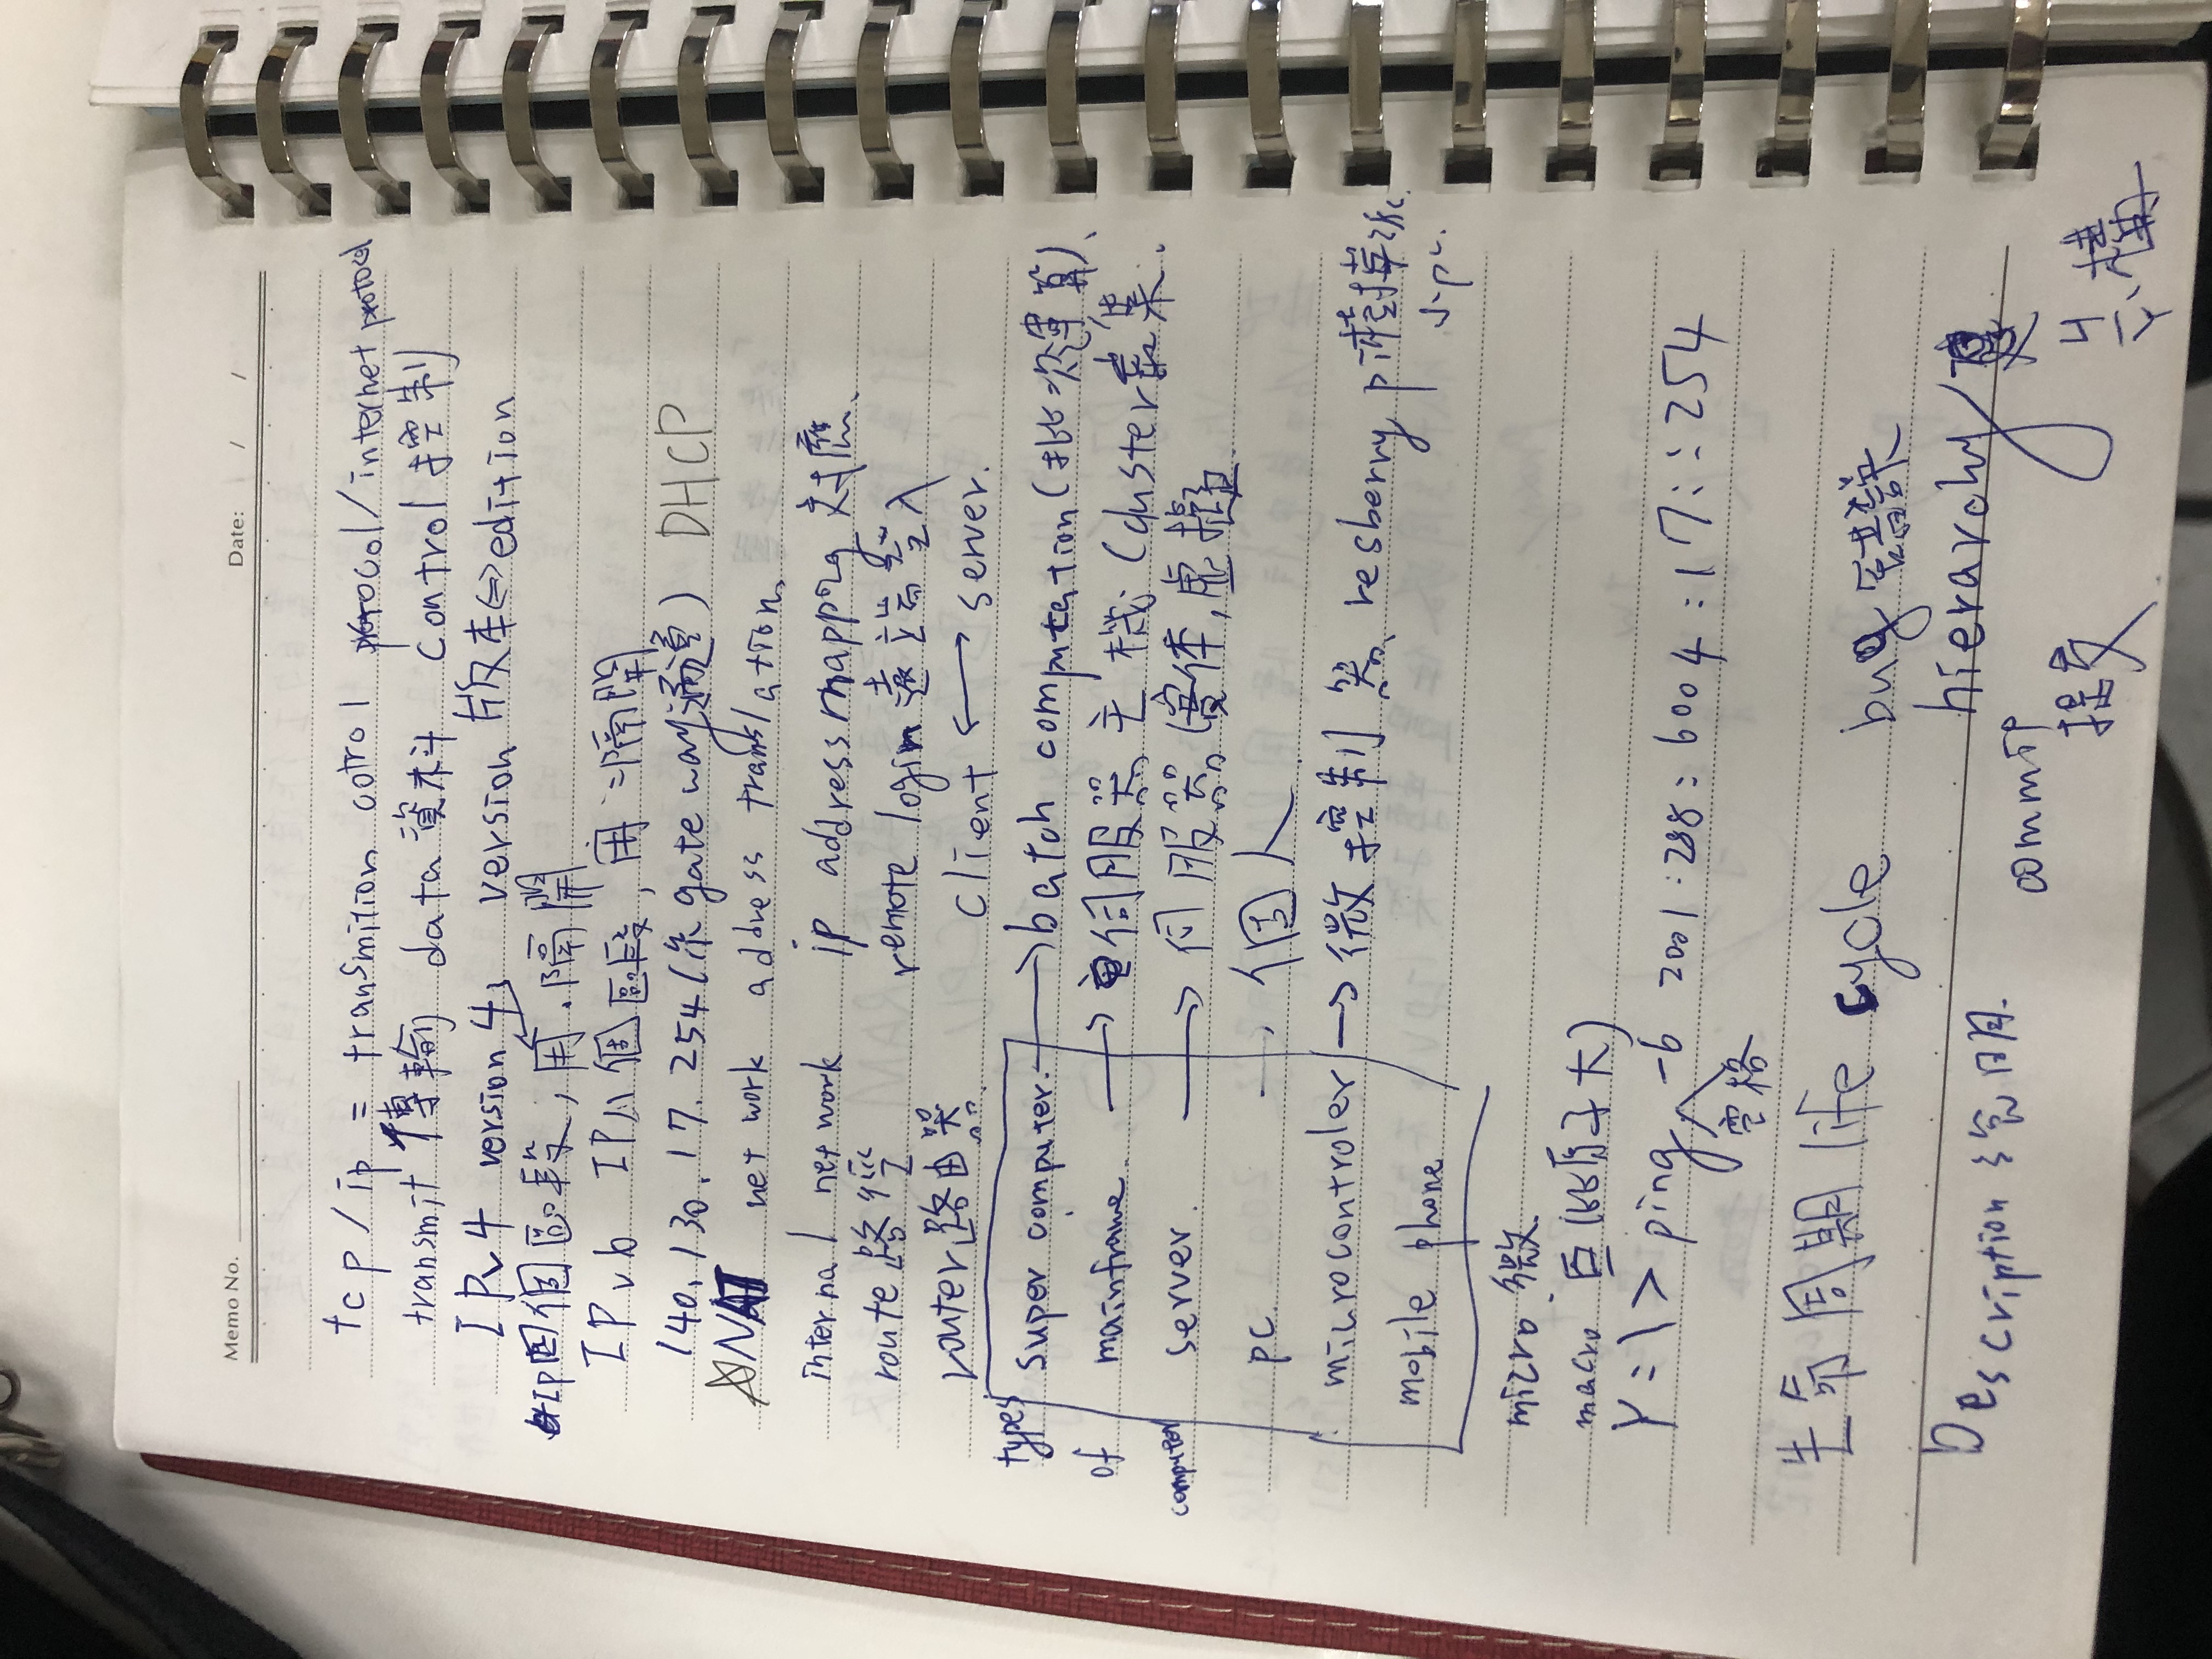 Memo No.
Date: / /
tcp/ip = transmition cotrol protocol/internet protocol
transmit 傳輸 data 資料 control 控制
IPv4 version 4, version 版本⇔edition
IP四個區段,用.隔開
IPv6 IP八個區段,用:隔開
140.130.17.254(系gateway通道) DHCP
☆NAT network address translation
internal network ip address mapping 對應
route路徑 remote login 遠端登入
router路由器 client ⟷ server.
types of computer
super computer. → batch computation(批次運算)
mainframe. → 伺服器主機(cluster叢集.
server. → 伺服器(實体,虛擬
pc. → 個人.
microcontroler → 微控制器 resberry pi 樹莓派
小pc.
mobile phone
micro 微
macro 巨(比原子大)
Y=\> ping -6 2001:288:6004:17::254
空格
生命周期 life cycle bug 錯誤
Description 說明. hierarchy
commit
提交 構